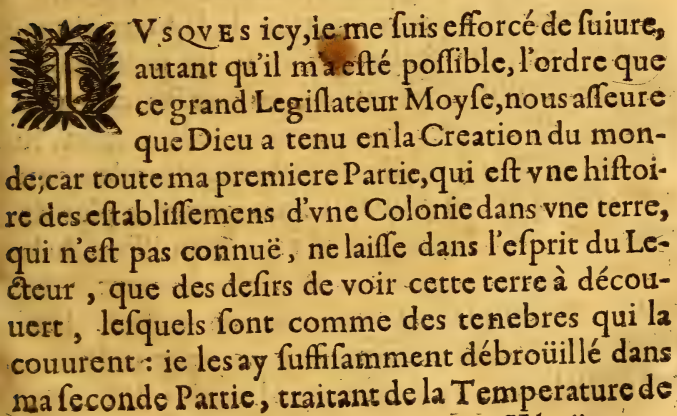 IVSQVES icy, ie me ſuis efforcé de ſuiure,
autant qu'il m'a eſté poſſible, l'ordre que
ce grand Legiſlateur Moyſe, nous aſſeure
que Dieu a tenu en la Creation du mon-
de; car toute ma premiere Partie, qui eſt vne hiſtoi-
re des eſtabliſſemens d'vne Colonie dans vne terre,
qui n'eſt pas connuë, ne laiſſe dans l'eſprit du Le-
cteur, que des deſirs de voir cette terre à décou-
uert, leſquels ſont comme des tenebres qui la
couurent: ie les ay ſuffiſamment débroüillé dans
ma ſeconde Partie, traitant de la Temperature de